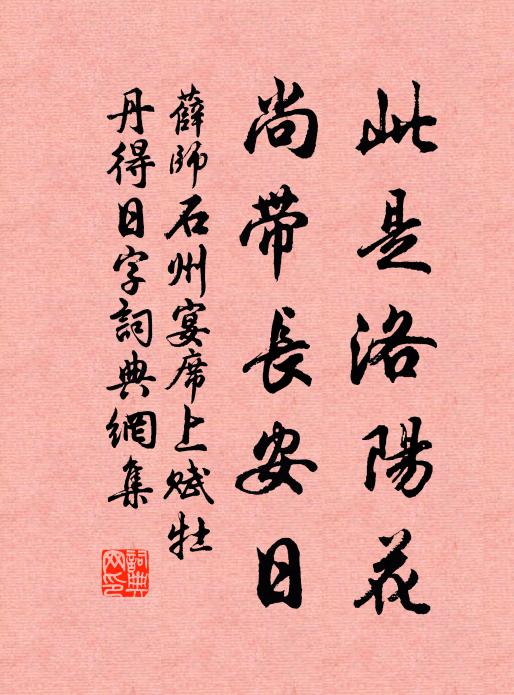 此是洛陽花
尚带長安日
薛師石州宴席上賦牡
丹得日字詞典網集
詞典網印